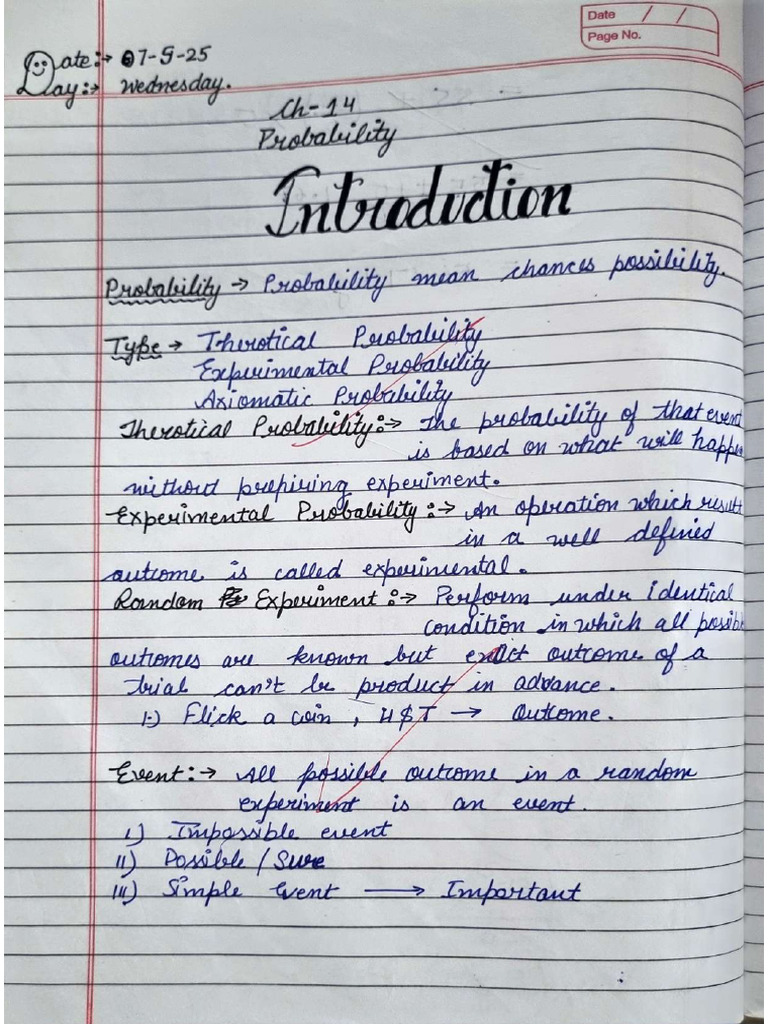 Date / /
Page No.
Date:→ 07-5-25
Day:→ Wednesday.
Ch-14
Probability
Introduction
Probability → Probability mean chances possibility.
Type → Therotical Probability
Experimental Probability
Axiomatic Probability
Therotical Probability:→ The probability of that event
is based on what will happen
without prepiring experiment.
Experimental Probability:→ An operation which result
in a well defined
outcome is called experimental.
Random Experiment:→ Perform under identical
condition in which all possib
outcomes are known but exact outcome of a
trial can't be product in advance.
1.) Flick a coin, H$T → Outcome.
Event:→ All possible outcome in a random
experiment is an event.
i) Impossible event
ii) Possible / Sure
iii) Simple Event → Important